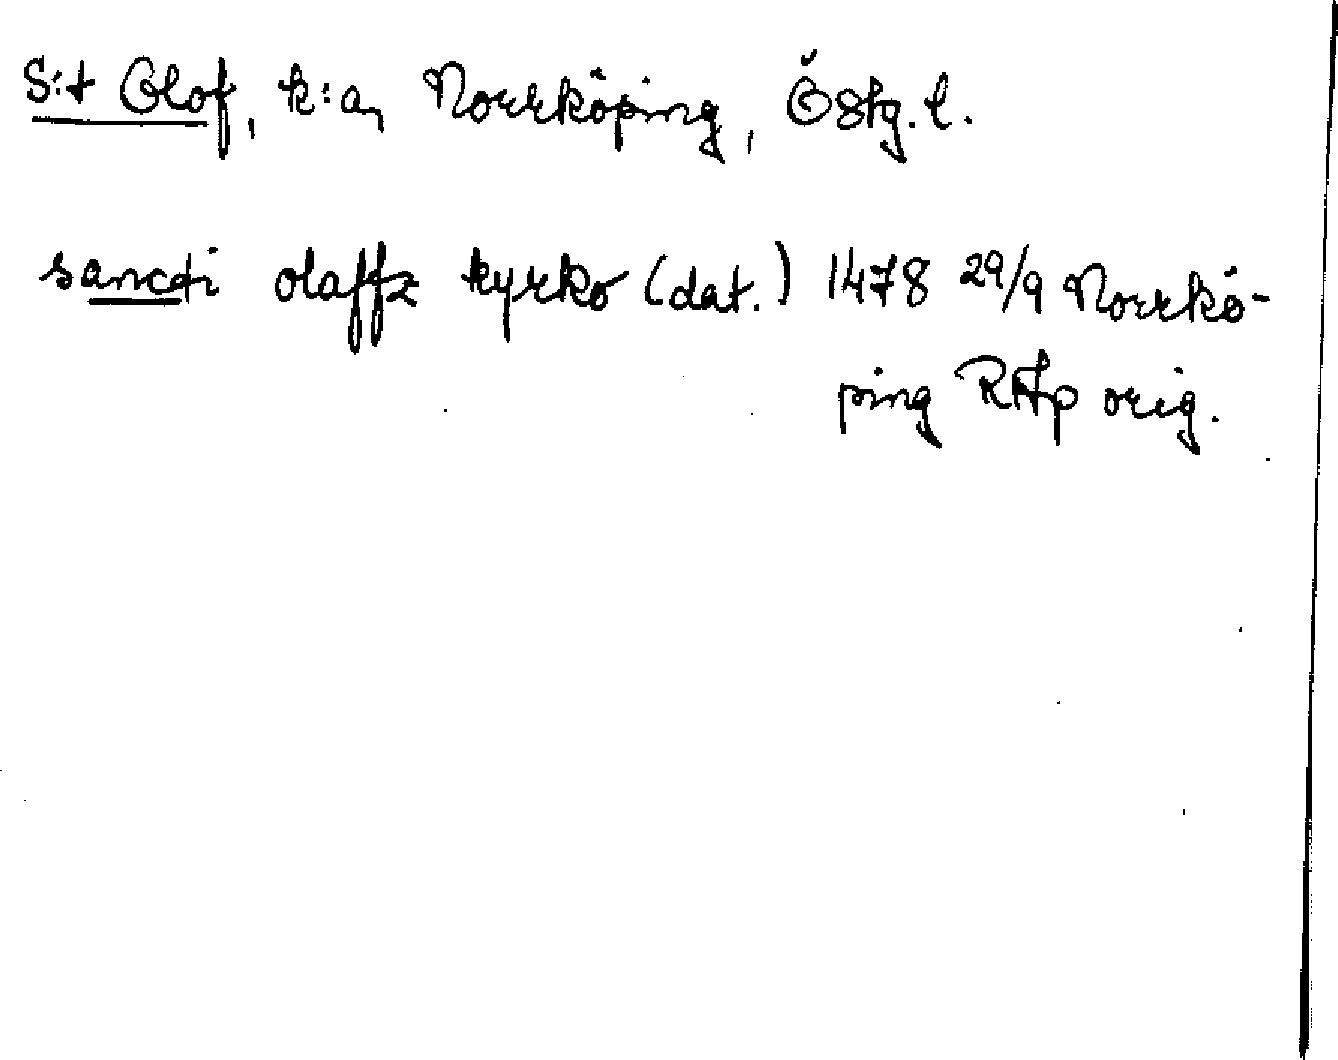 S:t Olof, k:a, Norrköping, Östg. l.
sancti olaffz kyrko (dat.) 1478 29/9 Norrkö-
ping RAp orig.